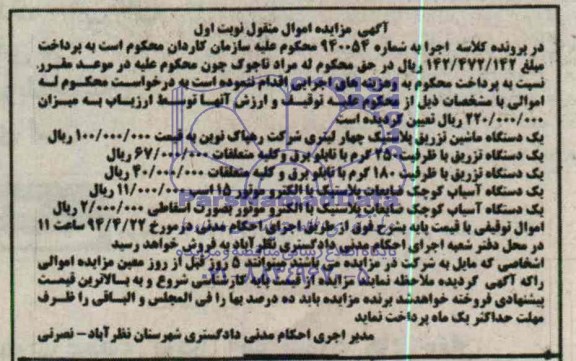 آگهی مزایده اموال منقول نوبت اول
در پرونده کلاسه اجرا به شماره ۹۴۰۰۵۴ محکوم علیه سازمان کاردان محکوم است به پرداخت
مبلغ ۱۴۲/۴۷۲/۱۴۲ ریال در حق محکوم له مراد تاجوک چون محکوم علیه در موعد مقرر
نسبت به پرداخت محکوم به وهزینه های اجرایی اقدام ننموده است به درخواست محکوم له
اموالی با مشخصات ذیل از محکوم علیه توقیف و ارزش آنها توسط ارزیاب به میزان
۲۲۰/۰۰۰/۰۰۰ ریال تعیین گردیده است
یک دستگاه ماشین تزریق پلاستیک چهار لیتری شرکت رهپاک نوین به قیمت ۱۰۰/۰۰۰/۰۰۰ ریال
یک دستگاه تزریق با ظرفیت ۲۵۰ گرم با تابلو برق وکلیه متعلقات ۶۷/۰۰۰/۰۰۰ ریال
یک دستگاه تزریق با ظرفیت ۱۸۰ گرم با تابلو برق و کلیه متعلقات ۴۰/۰۰۰/۰۰۰ ریال
یک دستگاه آسیاب کوچک ضایعات پلاستیک با الکترو موتور ۱۵ اسب ۱۱/۰۰۰/۰۰۰ ریال
یک دستگاه آسیاب کوچک ضایعات پلاستیک با الکترو موتور بصورت اسقاطی ۲/۰۰۰/۰۰۰ ریال
اموال توقیفی با قیمت پایه بشرح فوق از طریق اجرای احکام مدنی درمورخ ۹۴/۴/۲۲ ساعت ۱۱
در محل دفتر شعبه اجرای احکام مدنی دادگستری نظرآباد به فروش خواهد رسید
اشخاصی که مایل به شرکت در مزایده می باشند میتوانند ۵ روز قبل از روز معین مزایده اموالی
راکه آگهی گردیده ملاحظه نمایند مزایده از قیمت پایه کارشناسی شروع و به بالاترین قیمت
پیشنهادی فروخته خواهدشد برنده مزایده باید ده درصد بها را فی المجلس و الباقی را ظرف
مهلت حداکثر یک ماه پرداخت نماید
مدیر اجری احکام مدنی دادگستری شهرستان نظرآباد- نصرتی